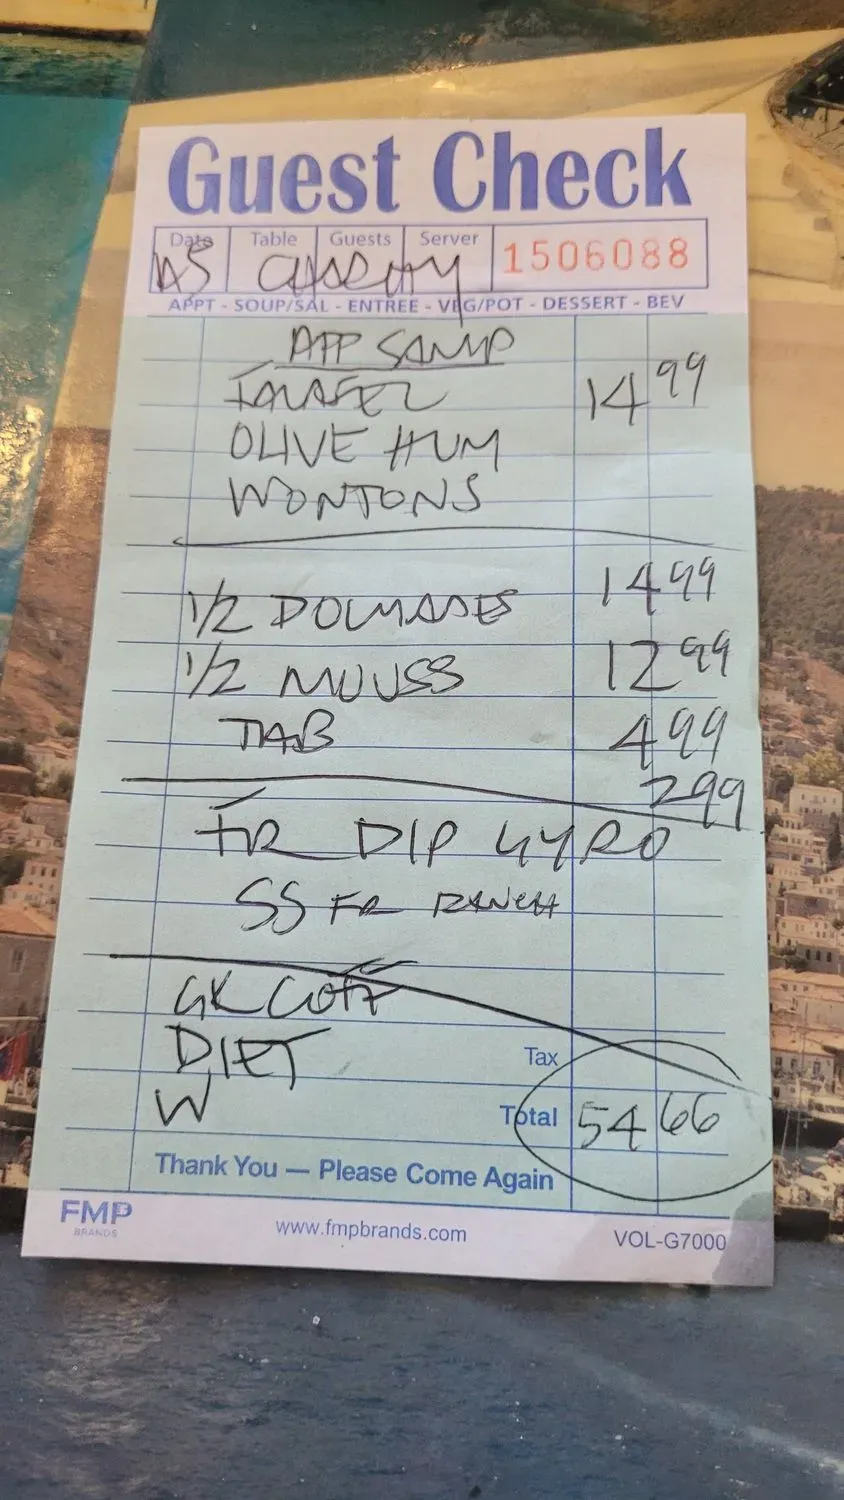 Guest Check
Date Table Guests Server 1506088
APPT - SOUP/SAL - ENTREE - VEG/POT - DESSERT - BEV
APP SAMP
FALAFEL 14 99
OLIVE HUM
WONTONS
1/2 DOLMADES 14 99
1/2 MOUSS 12 99
TAB 4 99
2 99
FR DIP GYRO
SS FR RANCH
GK COFF
DIET
Tax
W
Total 54 66
Thank You — Please Come Again
FMP
BRANDS
www.fmpbrands.com
VOL-G7000